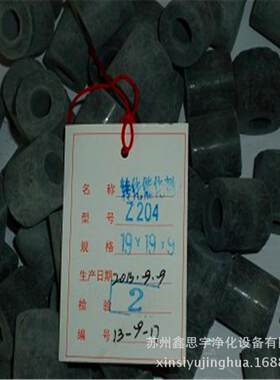 名称 转化催化剂
型号 Z204
规格 19×19×9
生产日期 2013.9.9
检验 2
编号 13-9-17
苏州鑫思宇净化设备有限
xinsiyujinghua.1688